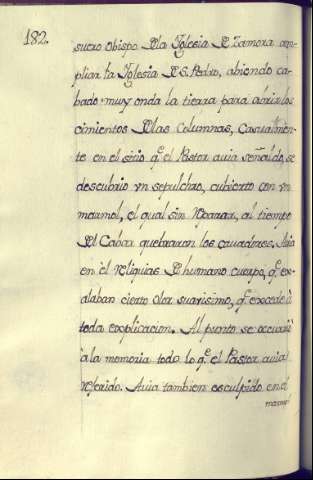 182
suero obispo Dla Iglesia D Zamora am-
pliar la Iglesia D S. Pedro, abiendo ca-
bado muy onda la tierra para abrir los
cimientos Dlas columnas, casualmen-
te en el sitio q.e el Pastor avia señaldo, se
descubrio vn sepulchro, cubierto con vn
marmol, el qual sin Reparar, al tiempo
Del Cabar quebraron los cavadores. Avia
en èl Reliquias D humano cuerpo, q.e ex-
alaban cierto olor suavisimo, q.e excede à
toda explicacion. Al punto se ocurriò
à la memoria todo lo q.e el Pastor avia
Referido. Avia tambien esculpido en el
marmol